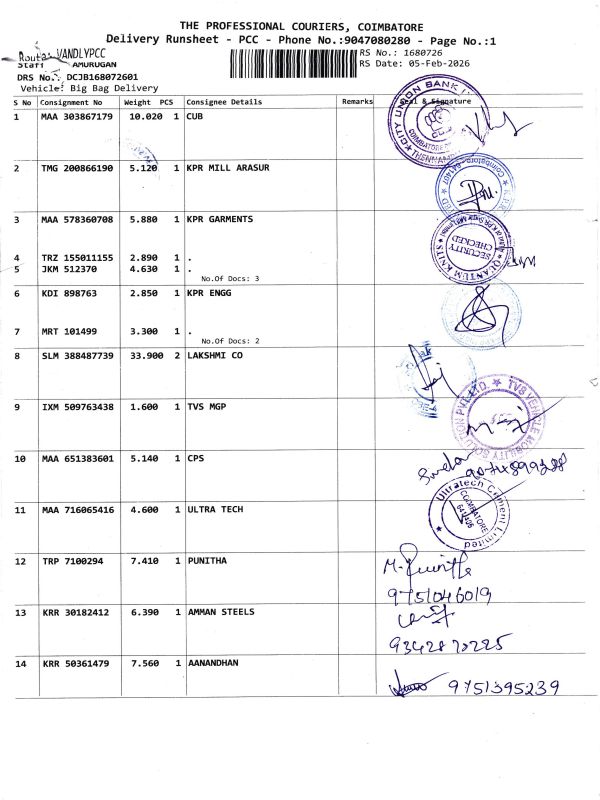 THE PROFESSIONAL COURIERS, COIMBATORE
Delivery Runsheet - PCC - Phone No.:9047080280 - Page No.:1
Route: VANDLYPCC
RS No.: 1680726
Staff AMURUGAN
RS Date: 05-Feb-2026
DRS No.: DCJB168072601
Vehicle: Big Bag Delivery
S No Consignment No Weight PCS Consignee Details Remarks Seal & Signature
1 MAA 303867179 10.020 1 CUB
CITY UNION BANK
COIMBATORE
2 TMG 200866190 5.120 1 KPR MILL ARASUR
Coimbatore - 641407
3 MAA 578360708 5.880 1 KPR GARMENTS
QUANTUM KNITS
SECURITY
CHECKED
4 TRZ 155011155 2.890 1 .
5 JKM 512370 4.630 1 .
No.Of Docs: 3
6 KDI 898763 2.850 1 KPR ENGG
7 MRT 101499 3.300 1 .
No.Of Docs: 2
8 SLM 388487739 33.900 2 LAKSHMI CO
9 IXM 509763438 1.600 1 TVS MGP
TVS VEHICLE MOBILITY SOLUTION PVT LTD.
10 MAA 651383601 5.140 1 CPS
11 MAA 716065416 4.600 1 ULTRA TECH
Ultratech Cement Limited
COIMBATORE
12 TRP 7100294 7.410 1 PUNITHA
M. Punitha
9751046019
13 KRR 30182412 6.390 1 AMMAN STEELS
9342870225
14 KRR 50361479 7.560 1 AANANDHAN
9751395239